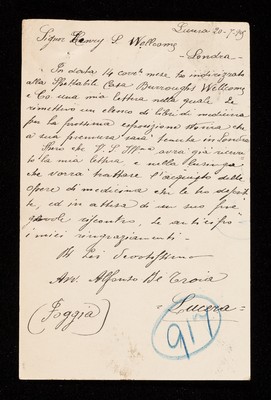 Lucera 20-7-35
Signor Henry S. Wellcome
- Londra
In data 14 corr. mese ho indirizzato
alla Spettabile Casa Burroughs Wellcome
e Co una mia lettera nella quale Le
rimettevo un elenco di libri di medicina
per la prossima esposizione storica che
a sua premura sarà tenuta in Londra
Spero che V. S. Ill.ma avrà già ricevu-
to la mia lettera e nella lusinga
che vorrà trattare l'acquisto delle
opere di medicina che le ho descrit-
te, ed in attesa di un suo pre-
gevole riscontro, le anticipo
i miei ringraziamenti.
Di Lei Devotissimo
Avv. Alfonso De Troia
(Foggia)
Lucera =
917